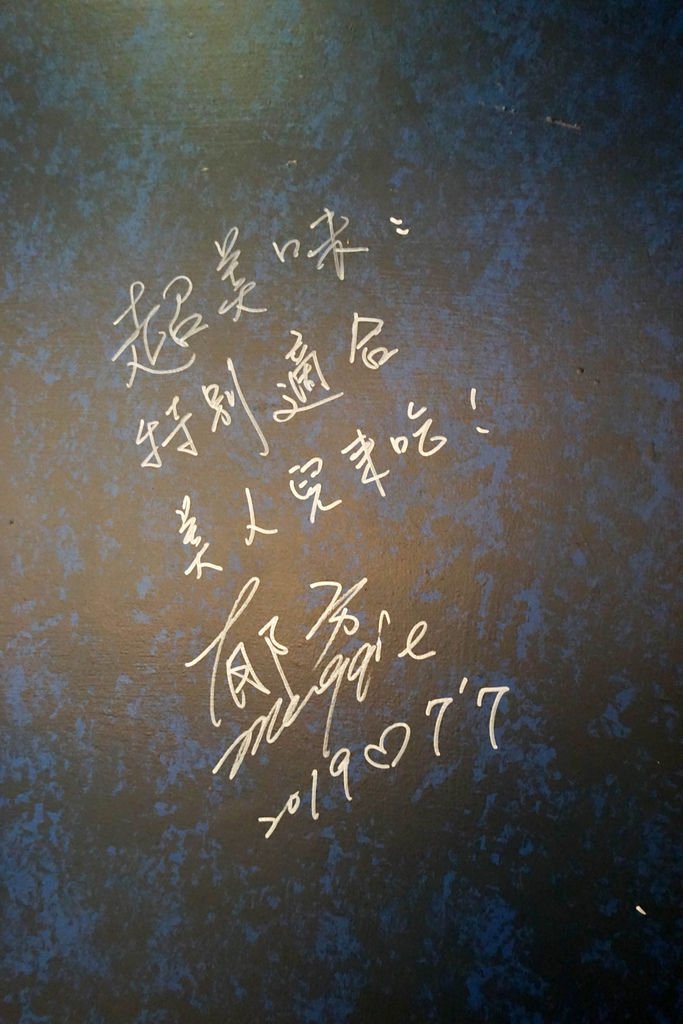 超美味:
特別適合
美人兒來吃!
郁方
Maggie
2019♡7'7